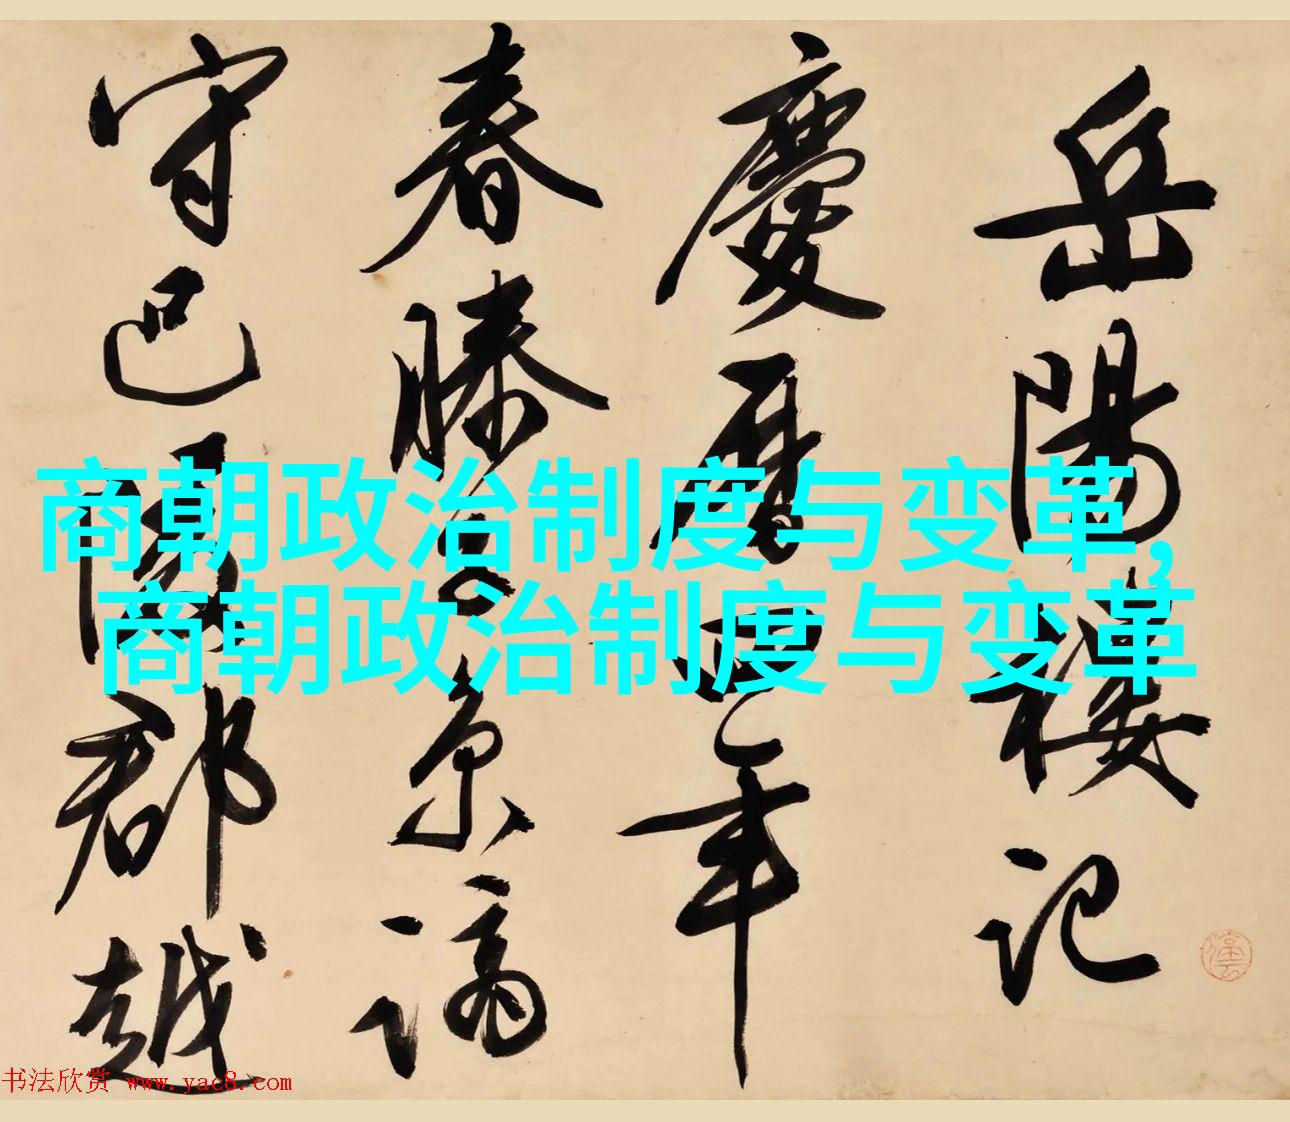 岳陽樓記
慶曆四年
春滕子京謫
守巴陵郡越
商朝政治制度与变革,
商朝政治制度与变革
书法欣赏 www.yac8.com